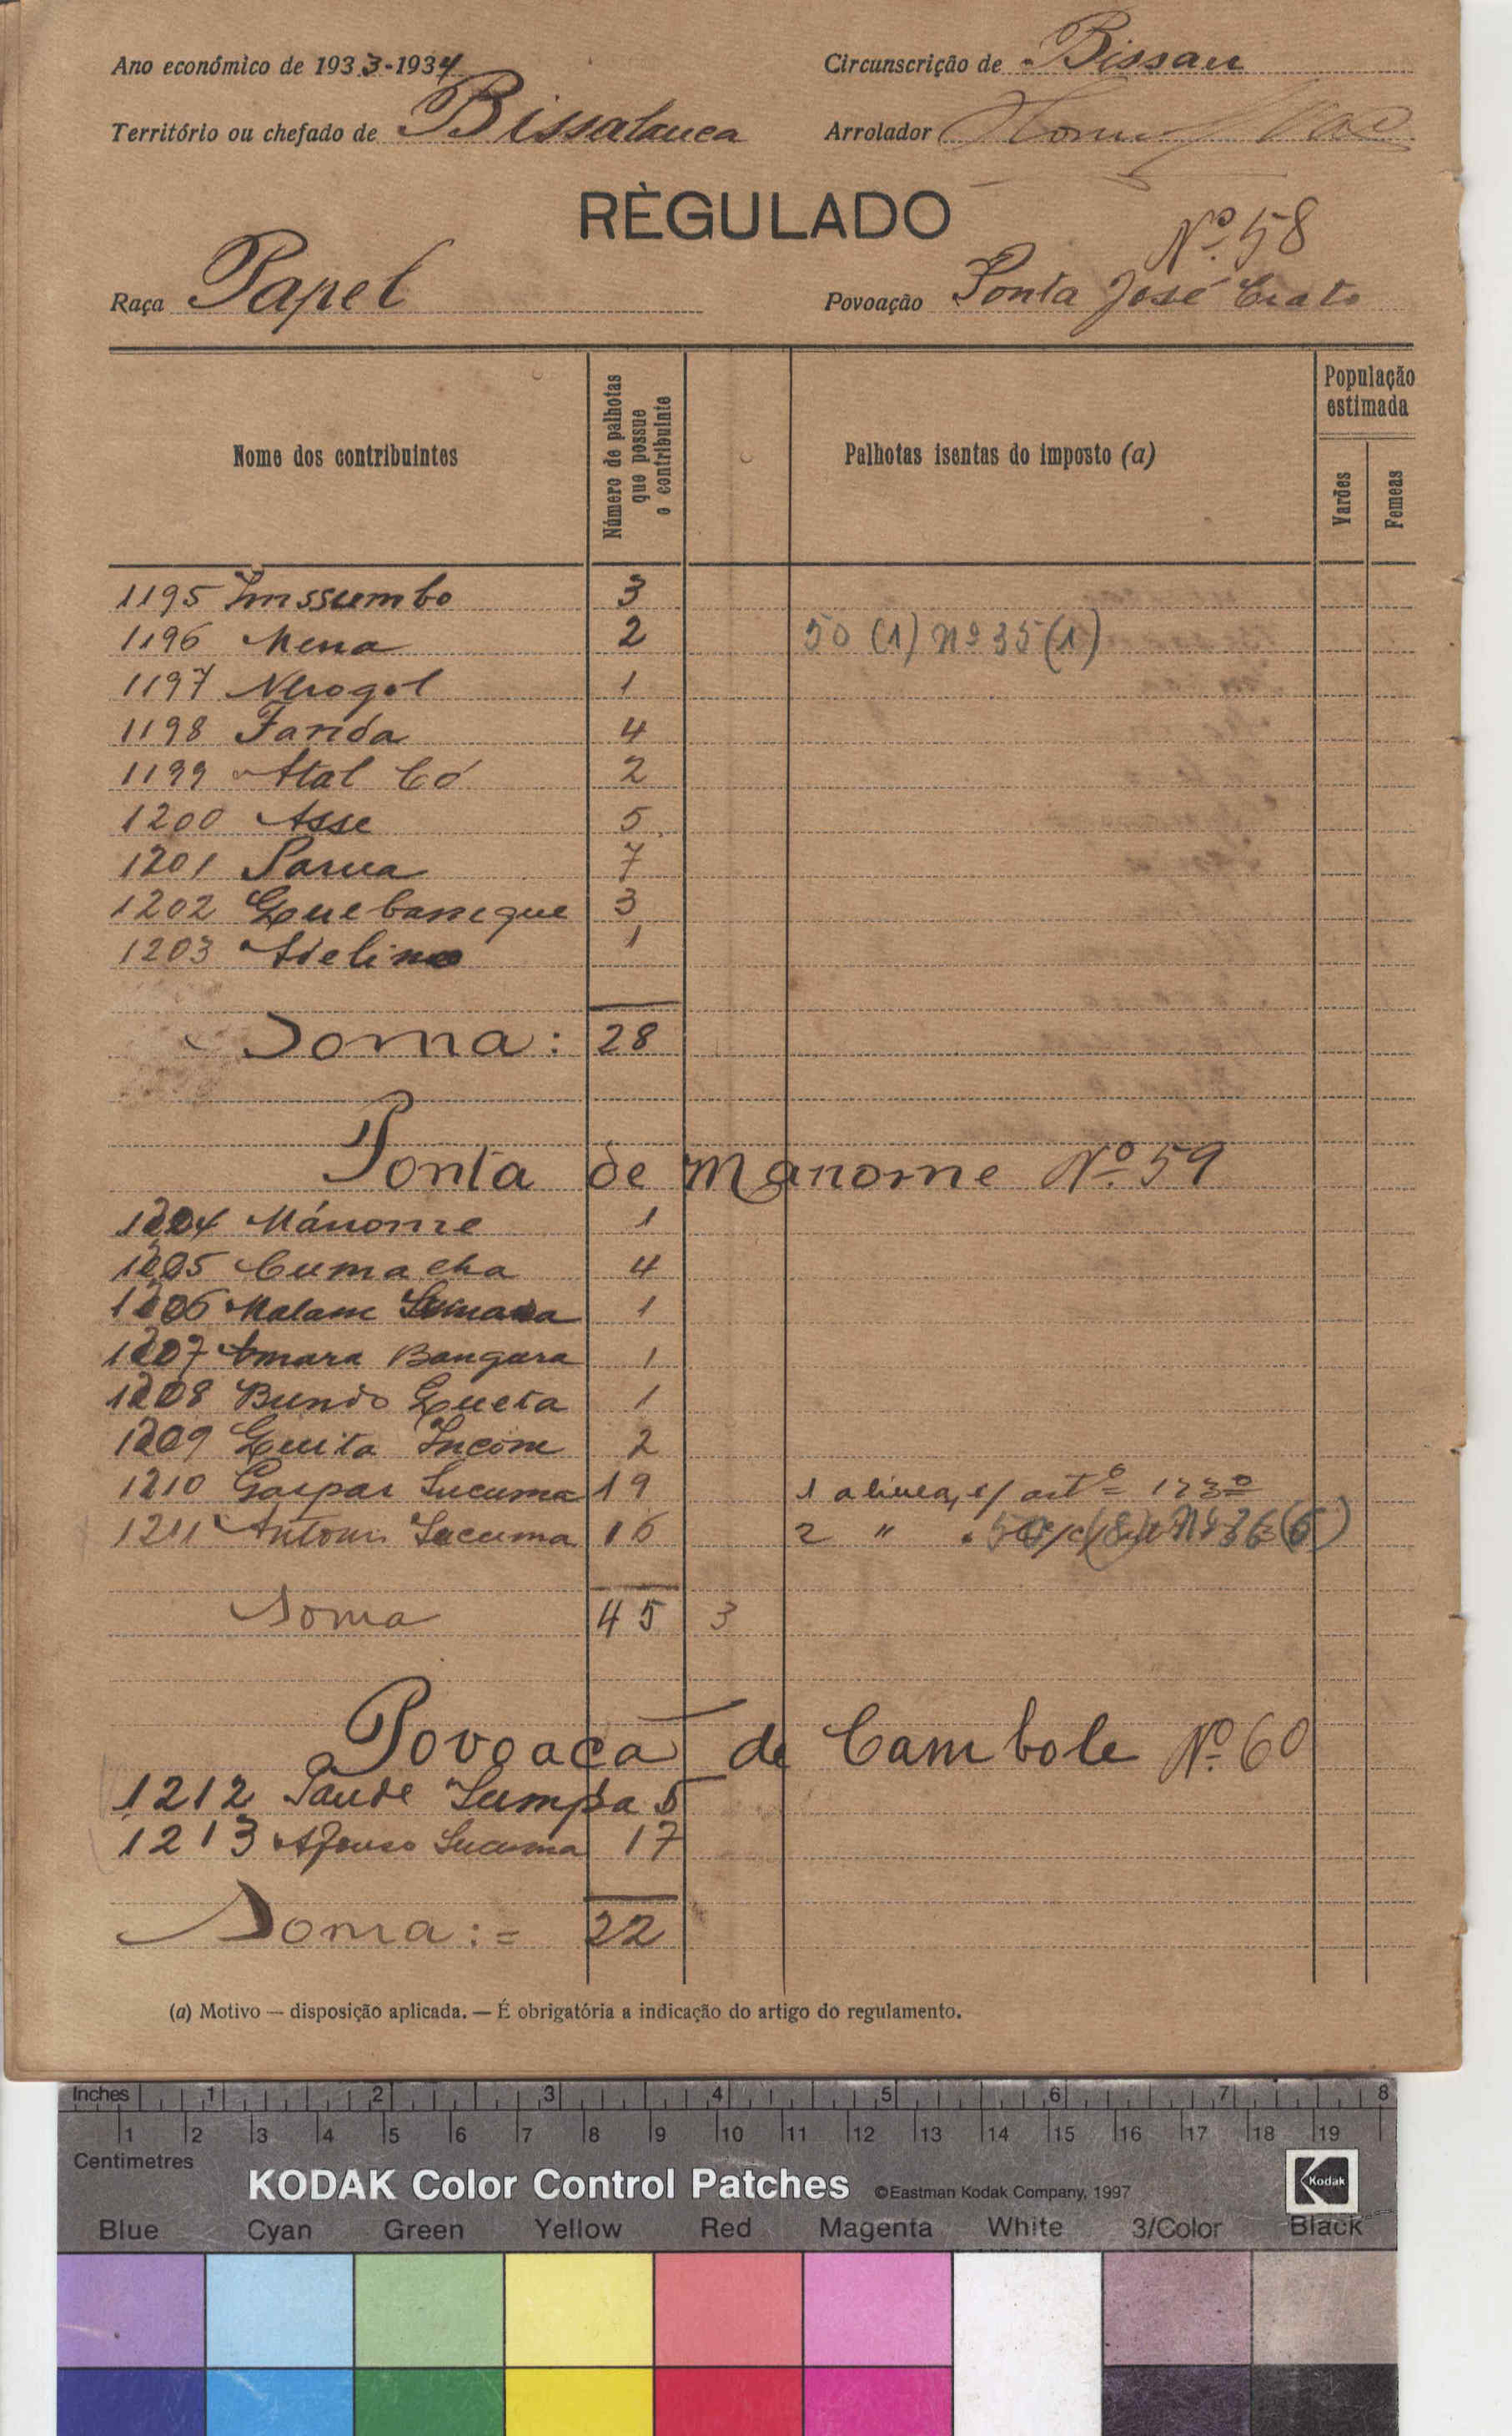 Ano económico de 1933-1934
Circunscrição de Bissau
Território ou chefado de Bissalanca
Arrolador
RÈGULADO
Nº 58
Raça Papel
Povoação Ponta José Crato
Nome dos contribuintes
Número de palhotas que possue o contribuinte
Palhotas isentas do imposto (a)
População estimada
Varões
Femeas
1195 Imssumbo 3
1196 Mena 2 50 (1) nº 35 (1)
1197 1
1198 Farida 4
1199 Atal Có 2
1200 Asse 5
1201 Parua 7
1202 Quebanique 3
1203 Adelino 1
Soma: 28
Ponta de Manome Nº 59
1204 Mánome 1
1205 Cumacha 4
1206 Malam 1
1207 Amara Bangura 1
1208 Bundo Queta 1
1209 Quita Incóm 2
1210 Gaspar Sucuma 19 1 alinea, c/ artº 123º
1211 Antoni Sucuma 16 2 "
Soma 45 3
Povoaca de Cambole Nº 60
1212 Paude Sumpa 5
1213 Afonso Sucuma 17
Soma:= 22
(a) Motivo — disposição aplicada. — É obrigatória a indicação do artigo do regulamento.
Inches 1 2 3 4 5 6 7 8
1 2 3 4 5 6 7 8 9 10 11 12 13 14 15 16 17 18 19
Centimetres
KODAK Color Control Patches ©Eastman Kodak Company, 1997 Kodak
Blue Cyan Green Yellow Red Magenta White 3/Color Black